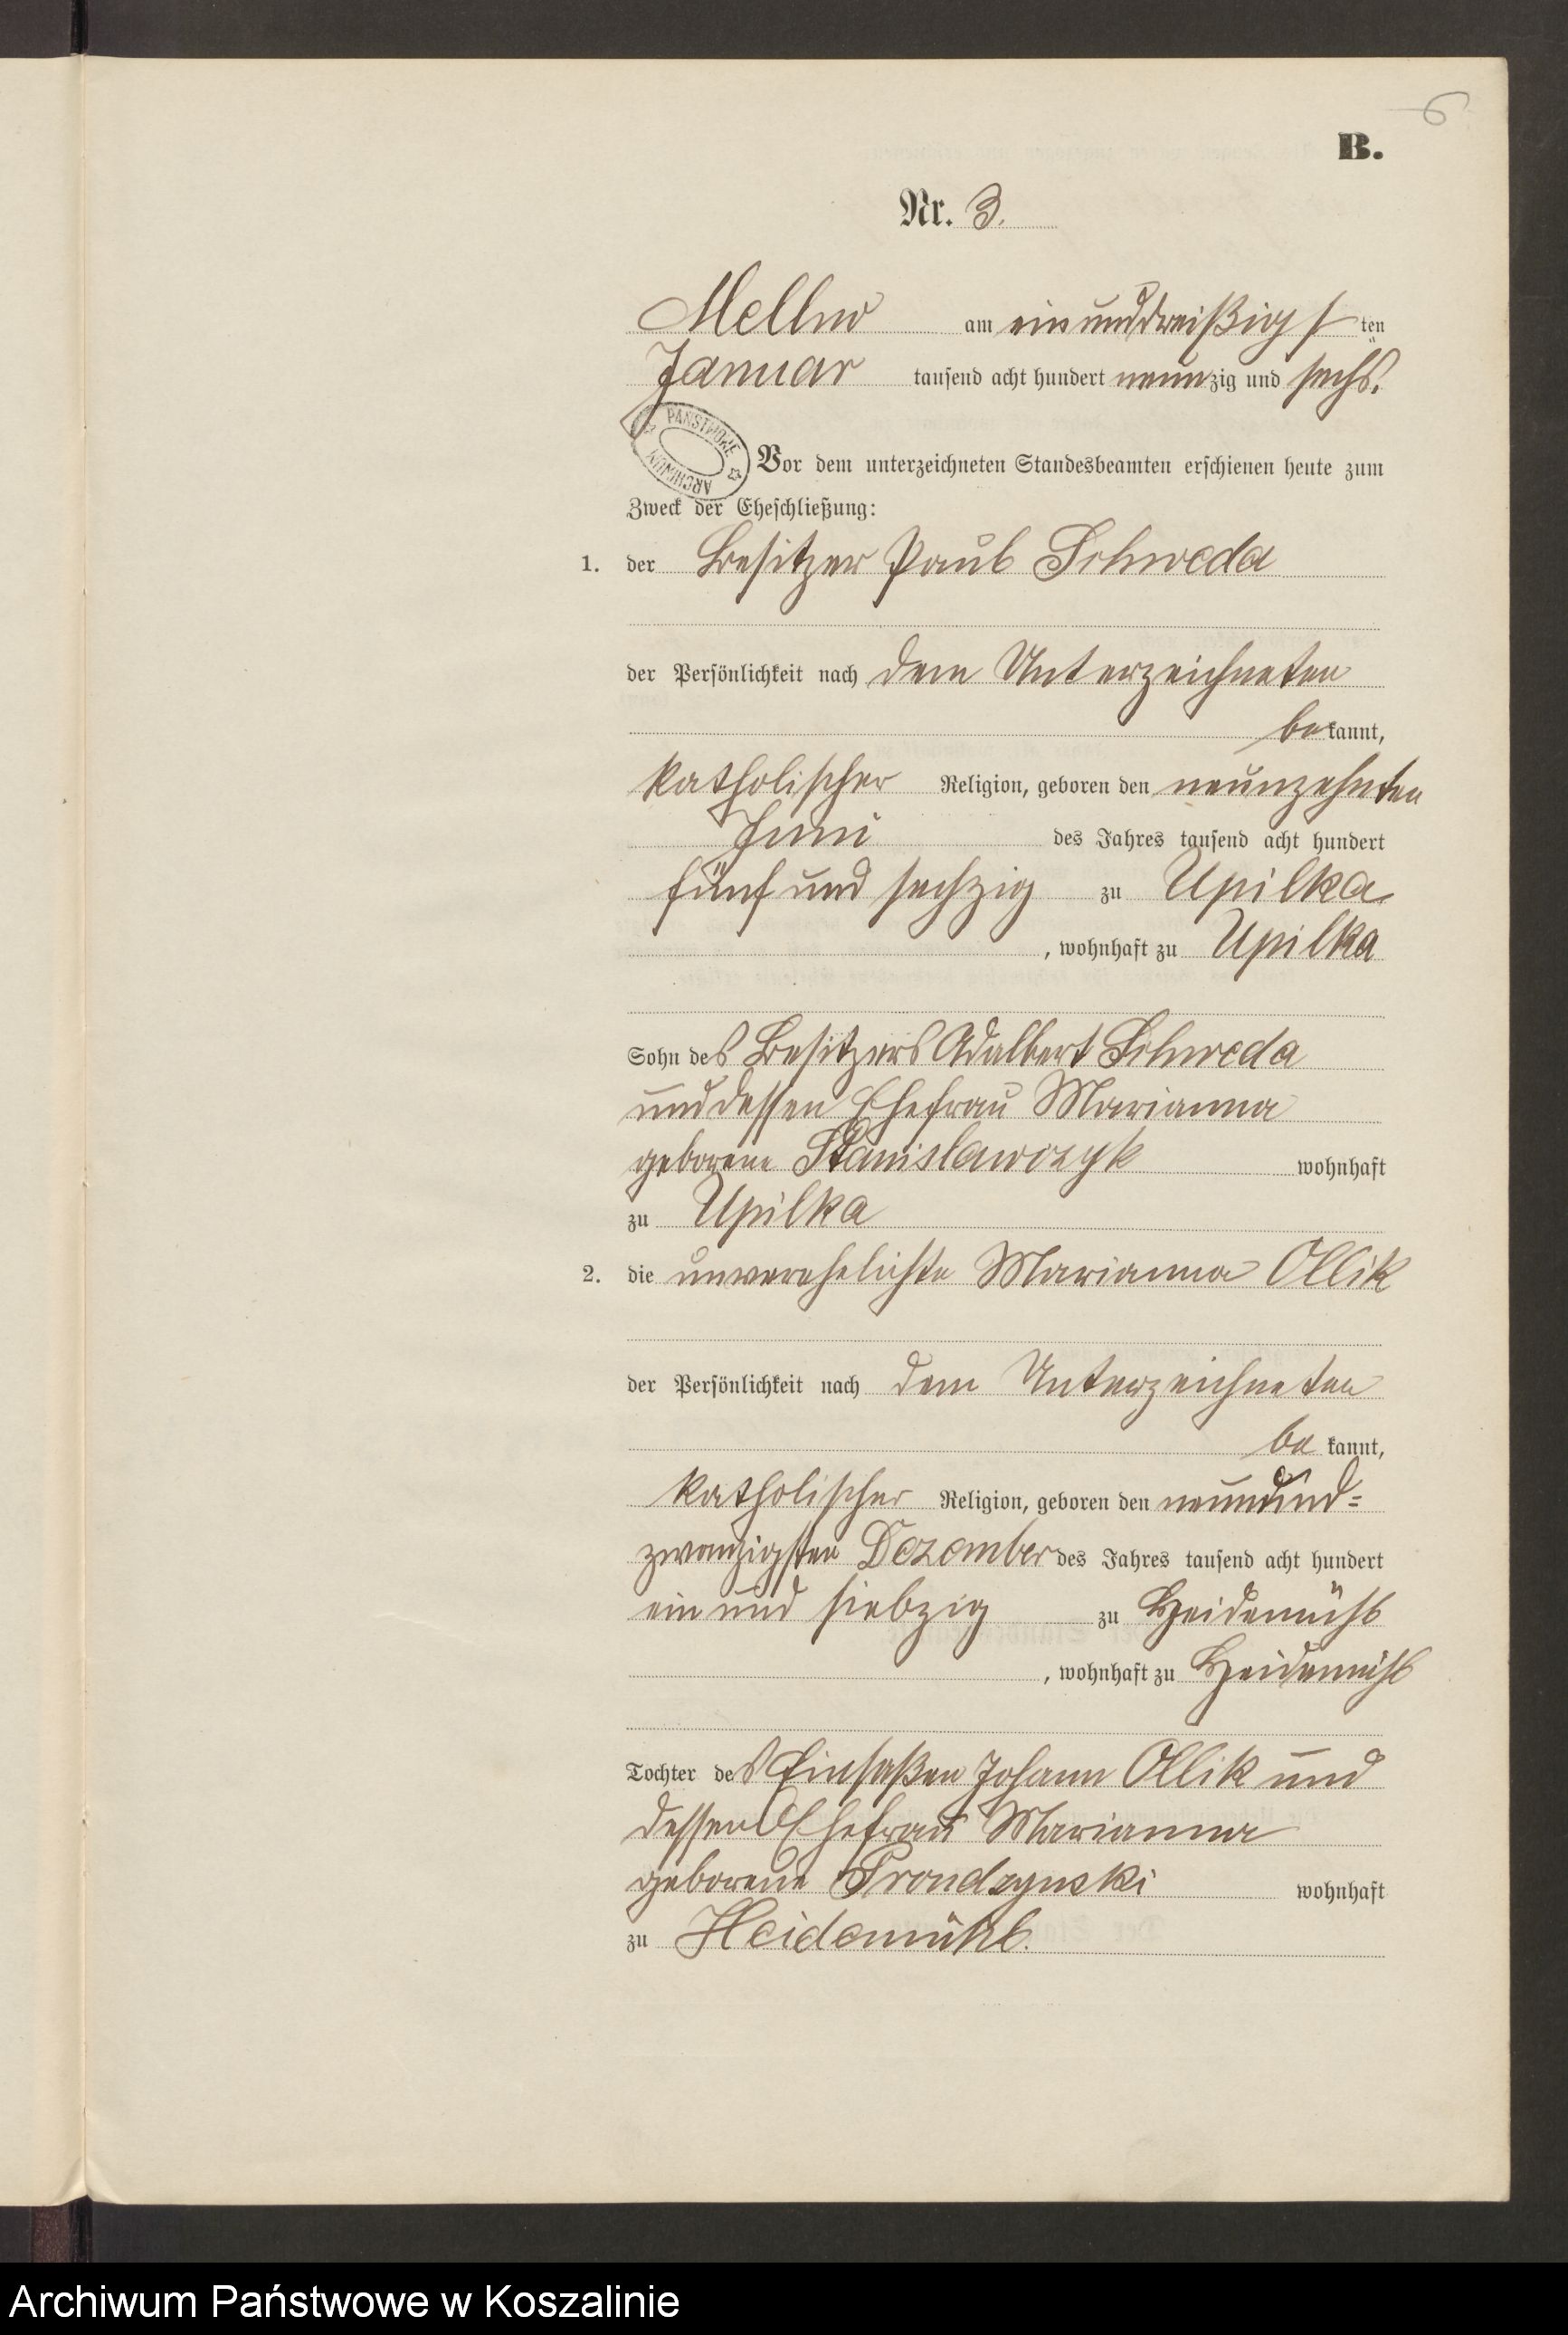 6
B.
Nr. 3.
Mellno am einunddreißigsten
Januar tausend acht hundert neunzig und sechs.
PAŃSTWOWE ARCHIWUM
Vor dem unterzeichneten Standesbeamten erschienen heute zum
Zweck der Eheschließung:
1. der Besitzer Paul Schweda
der Persönlichkeit nach dem Unterzeichneten
bekannt,
katholischer Religion, geboren den neunzehnten
Juni des Jahres tausend acht hundert
fünf und sechzig zu Upilka
, wohnhaft zu Upilka
Sohn des Besitzers Adalbert Schweda
und dessen Ehefrau Marianna
geborene Stanislawczyk wohnhaft
zu Upilka
2. die unverehelichte Marianna Ollik
der Persönlichkeit nach dem Unterzeichneten
bekannt,
katholischer Religion, geboren den neunund=
zwanzigsten Dezember des Jahres tausend acht hundert
ein und siebzig zu Heidemühl
, wohnhaft zu Heidemühl
Tochter des Einsaßen Johann Ollik und
dessen Ehefrau Marianna
geborene Prondzynski wohnhaft
zu Heidemühl.
Archiwum Państwowe w Koszalinie